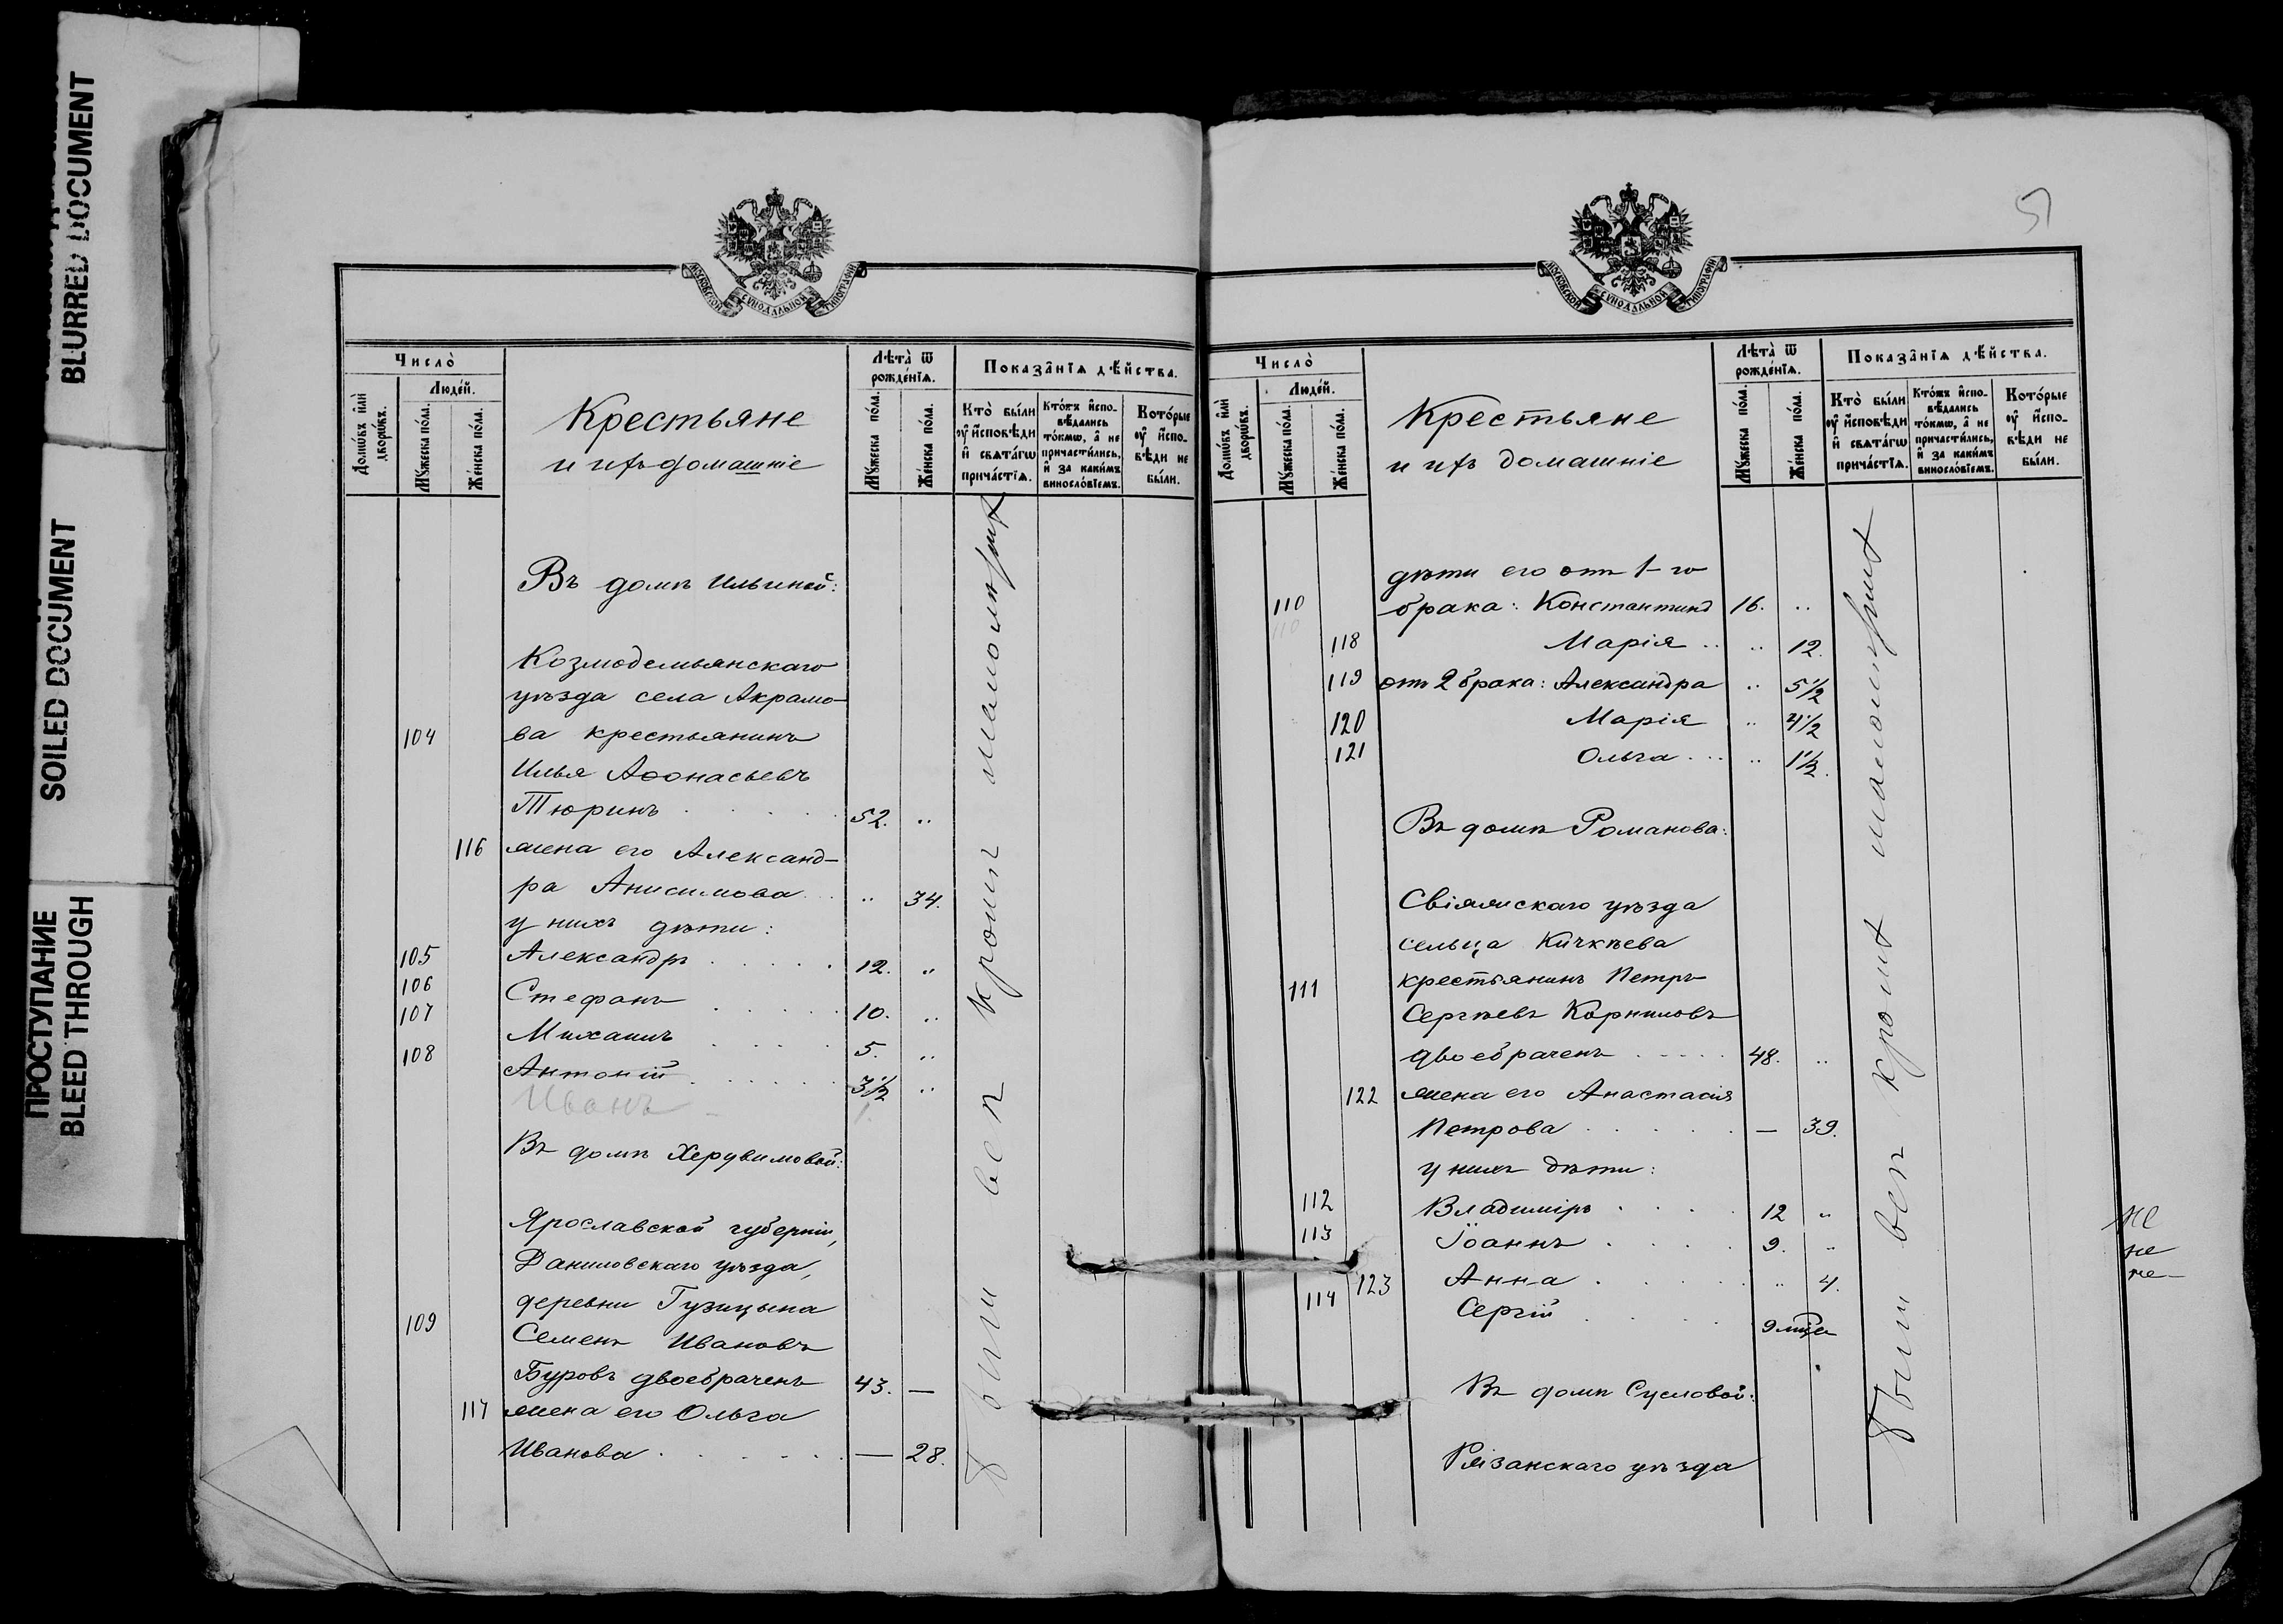 ПРОСТУПАНИЕ
BLEED THROUGH
SOILED DOCUMENT
BLURRED DOCUMENT
МОСКОВСКОЙ СѴНОДАЛЬНОЙ ТИПОГРАФІИ
Число̀
Домѡ́въ и҆лѝ дворѡ́въ.
Люде́й.
Мꙋ́жеска по́ла.
Же́нска по́ла.
Крестьяне
и ихъ домашніе
Лѣта̀ ѿ рожде́нїѧ.
Мꙋ́жеска по́ла.
Же́нска по́ла.
Показа̑нїѧ дѣ́йства.
Кто̀ бы́ли оу҆ и҆сповѣ́ди и҆ свѧта́гѡ прича́стїѧ.
Кто́жъ и҆спо-вѣ́дались то́кмѡ, а҆ не причасти́лись, и҆ за каки́мъ виносло́вїемъ.
Кото́рые оу҆ и҆спо-вѣ́ди не бы́ли.
Въ домѣ Ильиной:
Козмодемьянскаго
уѣзда села Акрамо-
104 ва крестьянинъ
Илья Аѳонасьевъ
Тюринъ 52. "
116 жена его Александ-
ра Анисимова " 34.
у нихъ дѣти:
105 Александръ 12. "
106 Стефанъ 10. "
107 Михаилъ 5. "
108 Антоній 3½ "
Иванъ 1.
Въ домѣ Херувимовой:
Ярославской губерніи,
Даниловскаго уѣзда,
деревни Гузицына
109 Семенъ Ивановъ
Буровъ двоебраченъ 43. —
117 жена его Ольга
Иванова — 28.
были всѣ кромѣ малолѣт
51
МОСКОВСКОЙ СѴНОДАЛЬНОЙ ТИПОГРАФІИ
Число̀
Домѡ́въ и҆лѝ дворѡ́въ.
Люде́й.
Мꙋ́жеска по́ла.
Же́нска по́ла.
Крестьяне
и ихъ домашніе
Лѣта̀ ѿ рожде́нїѧ.
Мꙋ́жеска по́ла.
Же́нска по́ла.
Показа̑нїѧ дѣ́йства.
Кто̀ бы́ли оу҆ и҆сповѣ́ди и҆ свѧта́гѡ прича́стїѧ.
Кто́жъ и҆спо-вѣ́дались то́кмѡ, а҆ не причасти́лись, и҆ за каки́мъ виносло́вїемъ.
Кото́рые оу҆ и҆спо-вѣ́ди не бы́ли.
дѣти его отъ 1-го
110 брака: Константинъ 16. "
110
118 Марія " 12.
119 отъ 2 брака: Александра " 5½
120 Марія " 4½
121 Ольга " 1½.
Въ домѣ Романова:
Свіяжскаго уѣзда
сельца Кичкѣева
111 крестьянинъ Петръ
Сергѣевъ Корниловъ
двоебраченъ 48. "
122 жена его Анастасія
Петрова — 39.
у нихъ дѣти:
112 Владиміръ 12 " не
113 Іоаннъ 9. " не
123 Анна " 4. не
114 Сергій 9 мца
Въ домѣ Сусловой:
Рязанскаго уѣзда
были всѣ кромѣ малолѣт